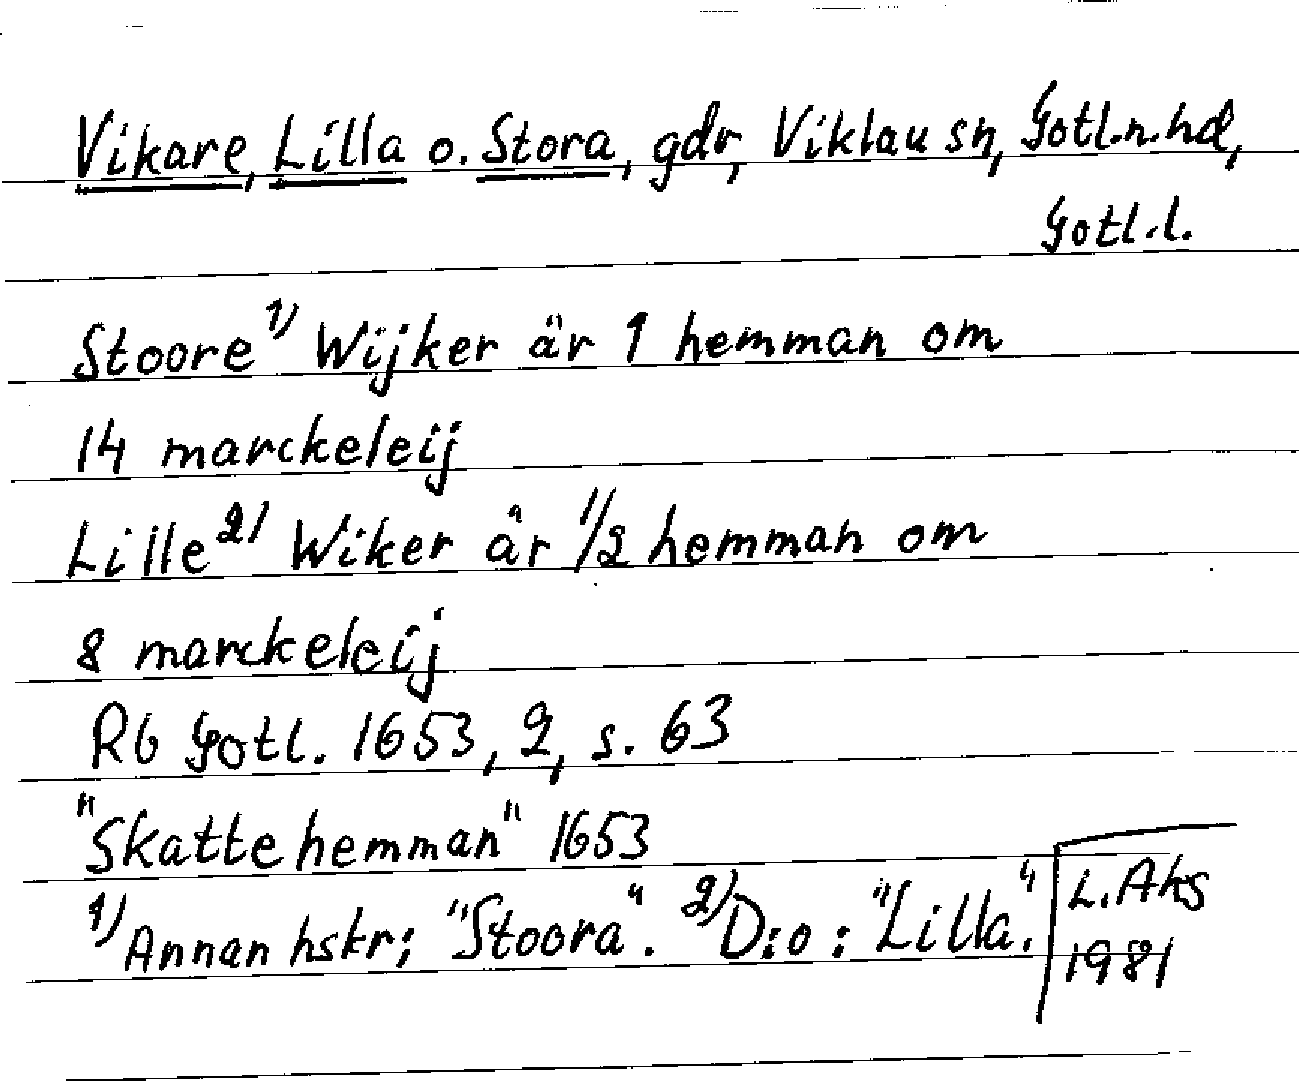 Vikare, Lilla o. Stora, gdr, Viklau sn, Gotl.n.hd,
Gotl.l.
Stoore 1) Wijker är 1 hemman om
14 marckeleij
Lille 2) Wiker är 1/2 hemman om
8 marckeleij
Rb Gotl. 1653, 2, s. 63
"Skattehemman" 1653
1) Annan hskr; "Stoora". 2) D:o: "Lilla."
L. Aks
1981